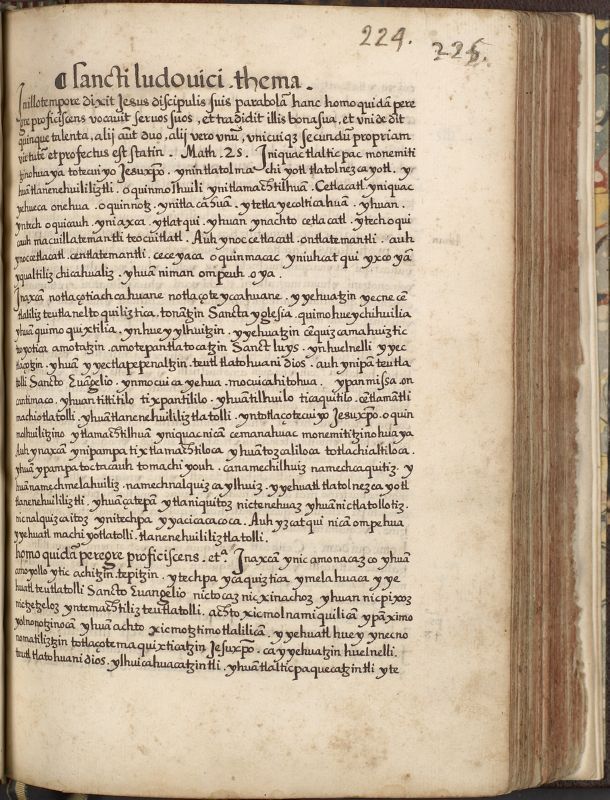 224. 225.
¶ Sancti ludouici . thema .
In illo tempore dixit Jesus discipulis suis parabolã hanc homo quidã pere
gre proficiscens vocauit seruos suos , et tradidit illis bona sua, et vni dedit
quinque talenta, alij aũt duo, alij vero vnũ, vnicuiq₃ secundũ propriam
virtutẽ et profectus est statin . Math . 25 . Iniquac tlalticpac monemiti
tzinohuaya totecuiyo Jesuxp̃o . ynin tlatolmachiyotl tlatolnezcayotl . y
huã tlanenehuililiztli . oquinmolhuili ynitlamachtilhuã . Ce tlacatl yniquac
yehueca onehua . oquinnotz . ynitlacahuã . ytetlayecolticahuã . yhuan .
yntech oquicauh . yniaxca . ytlatqui . yhuan ynachto ce tlacatl . ytech oqui
cauh macuillatemantli teocuitlatl . Auh ynoc ce tlacatl . ontlatemantli . auh
ynoc ce tlacatl . centlatemantli . ceceyaca oquinmacac yniuhcatqui yxcoyã
yqualtiliz chicahualiz . yhuã niman ompeuh oya :
Inaxcã notlaçotiachcahuane notlaçoteyccahuane . yyehuatzin yecnecẽ
tlaliliz teutlaneltoquiliztica . tonãtzin Sancta yglesia . quimohueychihuilia
yhuã quimoquixtilia . ynhuey ylhuitzin . yyehuatzin cẽquizcamahuiztic
toyotica amotatzin . amotepantlatocatzin Sanct luys . ynhuelnelli yyec
tlaçotzin . yhuã yyectlapepenaltzin . teutl tlatohuani dios . auh ynipã teutla
tolli Sancto Euãgelio . ynmocuicayehua . mocuicahitohua . ypan missa . on
cantimaco . yhuan tittitilo tixpantililo . yhuã tilhuilo ticaquitilo . cẽtlamãtli
machiotlatolli . yhuã tlanenehuililiz tlatolli . yntotlaçotecuiyo Jesuxp̃o . oquin
molhuilitzino ytlamachtilhuã yniquac nicã cemanahuac monemititzinohuaya
Auh ynaxcã ynipampa tixtlamachtiloca yhuã tozcaliloca totlachialtiloca .
yhuã ypampa toctacauh tomachiyouh . canamechilhuiz namechcaquitiz . y
huã namechmelahuiliz . namechnalquizcaylhuiz . yyehuatl tlatolnezcayotl
tlanenehuililiztli . yhuã çatepã ytlaniquitoz nictenehuaz yhuã nictlatollotiz .
nicnalquizcaitoz ynitechpa yyacicacacoca . Auh yzcatqui nicã ompehua
yyehuatl machiyotlatolli . tlanenehuililiztlatolli .
homo quidã peregre proficiscens . et.ᵃ Inaxcã ynic amonacazco yhuã
amoyolloytic achitzin . tepitzin . ytechpa ycaquiztica ynmelahuaca yye
huatl teutlatolli Sancto Euangelio nictocaz nicxinachoz yhuan nicpixoz
nictzetzeloz yntemachtiliz teutlatolli . achto xicmolnamiquilicã ypã ximo
yolnonotzinocã yhuã achto xicmotztimotlalilicã . yyehuatl huey ynecno
nomatiliztzin totlaçotemaquixticatzin Jesuxp̃o . cayyehuatzin huelnelli .
teutl tlatohuani dios . ylhuicahuacatzintli . yhuã tlalticpaquecatzintli yte